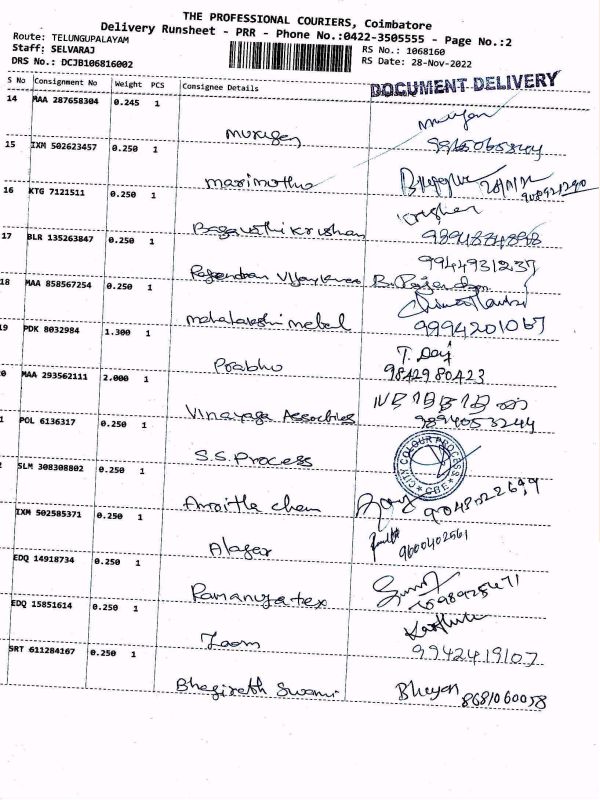 THE PROFESSIONAL COURIERS, Coimbatore
Delivery Runsheet - PRR - Phone No.:0422-3505555 - Page No.:2
Route: TELUNGUPALAYAM
Staff: SELVARAJ
RS No.: 1068160
DRS No.: DCJB106816002
RS Date: 28-Nov-2022
S No Consignment No Weight PCS Consignee Details
DOCUMENT DELIVERY
14 MAA 287658304 0.245 1
murugan
15 IXM 502623457 0.250 1
marimuthu
16 KTG 7121511 0.250 1
krishan
17 BLR 135263847 0.250 1
9944931237
Rajendran Vijaykumar B. Rajendran
18 MAA 858567254 0.250 1
mahalakshi metal 9994201067
19 PDK 8032984 1.300 1
Prabhu 9842980423
0 MAA 293562111 2.000 1
Vinayaga Associates 9894053244
1 POL 6136317 0.250 1
S.S. Process
CITY COLOUR PROCESS
CBE
2 SLM 308308802 0.250 1
chem
IXM 502585371 0.250 1
Alagar 9600402561
EDQ 14918734 0.250 1
Ramanuja tex
EDQ 15851614 0.250 1
Zoom 9942419107
SRT 611284167 0.250 1
Bhagirath Swami 8681060058